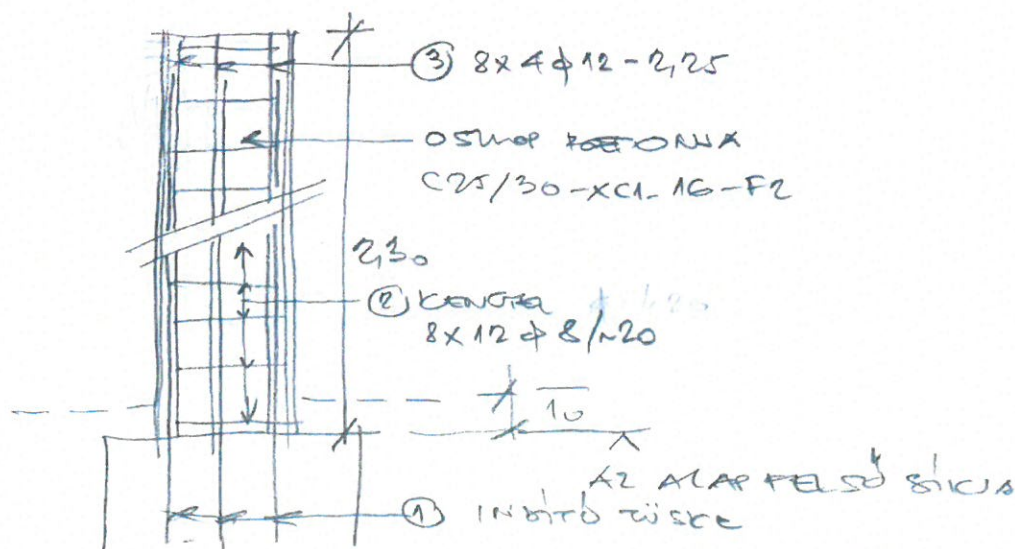 ③ 8x4ϕ12-2,25
OSZLOP BETONJA
C25/30-XC1-16-F2
2,30
② KENGYEL
8x12ϕ8/~20
10
AZ ALAP FELSŐ SÍKJA
① INDÍTÓ TÜSKE